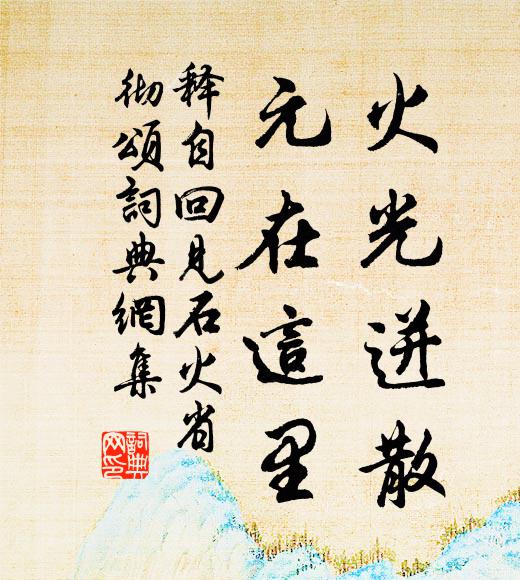 火光迸散
元在這里
释自回見石火省
彻頌詞典網集
詞典网印